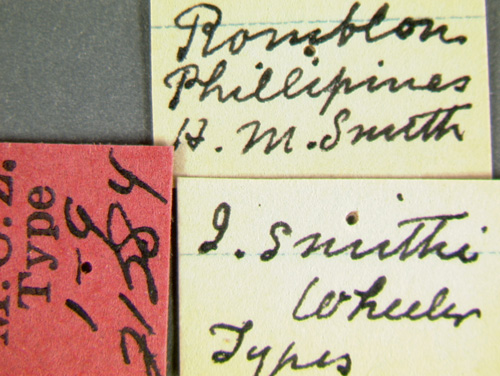 Romblon
Phillipines
H. M. Smith
M.C.Z.
Type
1-9
21384
I. Smithi
Wheeler
Types